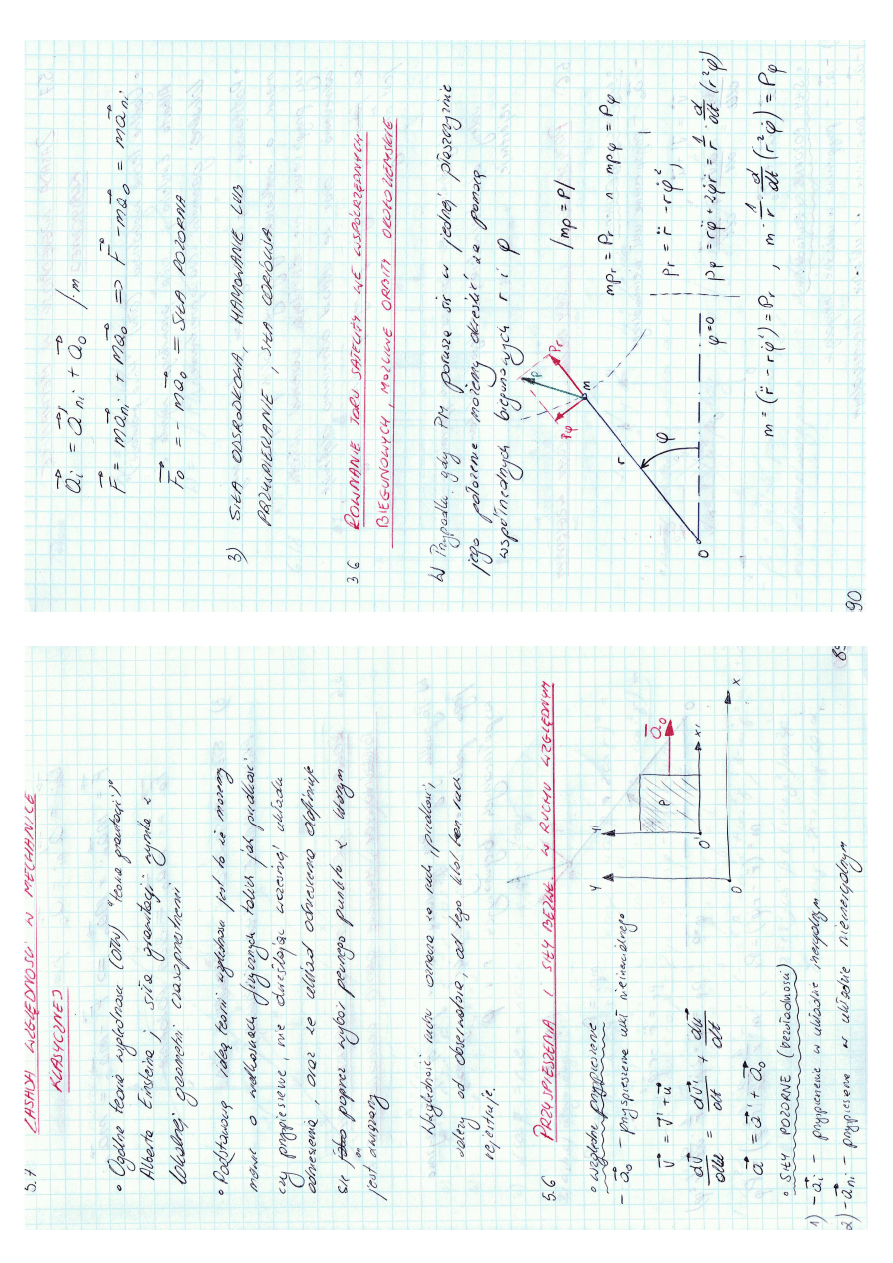 5.7 ZASADA WZGLĘDNOŚCI W MECHANICE
KLASYCZNEJ
• Ogólna teoria względności (OTW) "teoria grawitacji"
Alberta Einsteina; siła grawitacji wynika z
lokalnej geometrii czasoprzestrzeni
• Podstawową ideą teorii względności jest to że możemy
mówić o wielkościach fizycznych takich jak prędkość
czy przyspieszenie, nie określając wcześniej układu
odniesienia, oraz że układ odniesienia definiuje
się poprzez wybór pewnego punktu z którym
on jest związany
Względność ruchu oznacza że ruch, prędkość,
zależy od obserwatora, od tego kto ten ruch
rejestruje.
5.6 PRZYSPIESZENIA I SIŁY BEZWŁ. W RUCHU WZGLĘDNYM
• względne przyspieszenie
- a⃗₀ - przyspieszenie ukł nieinercjalnego
v⃗ = v⃗' + u⃗
dv⃗/dt = dv⃗'/dt + du⃗/dt
a⃗ = a⃗' + a⃗₀
y
y'
P
a⃗₀
O'
x'
O
x
• SIŁY POZORNE (bezwładności)
1) - a⃗i - przyspieszenie w układzie inercjalnym
2) - a⃗ni - przyspieszenie w układzie nieinercjalnym
89
a⃗i = a⃗'ni + a⃗₀ /·m
F⃗ = ma⃗ni + ma⃗₀ => F⃗ - ma⃗₀ = ma⃗ni
F⃗₀ = - ma⃗₀ = SIŁA POZORNA
3) SIŁA ODŚRODKOWA, HAMOWANIE LUB
PRZYSPIESZANIE, SIŁA CORIOLISA
3.6 RÓWNANIE TORU SATELITY WE WSPÓŁRZĘDNYCH
BIEGUNOWYCH, MOŻLIWE ORBITY OKOŁOZIEMSKIE
W Przypadku gdy PM porusza się w jednej płaszczyźnie
jego położenie możemy określić za pomocą
współrzędnych biegunowych r i φ
/mp = P/
Pφ
P
Pr
m
r
φ
O
φ=0
mpr = Pr ∧ mpφ = Pφ
pr = r̈ - rφ̇²,
pφ = rφ̈ + 2φ̇ṙ = 1/r · d/dt (r²φ̇)
m = (r̈ - rφ̇²) = Pr , m · 1/r · d/dt (r²φ̇) = Pφ
90